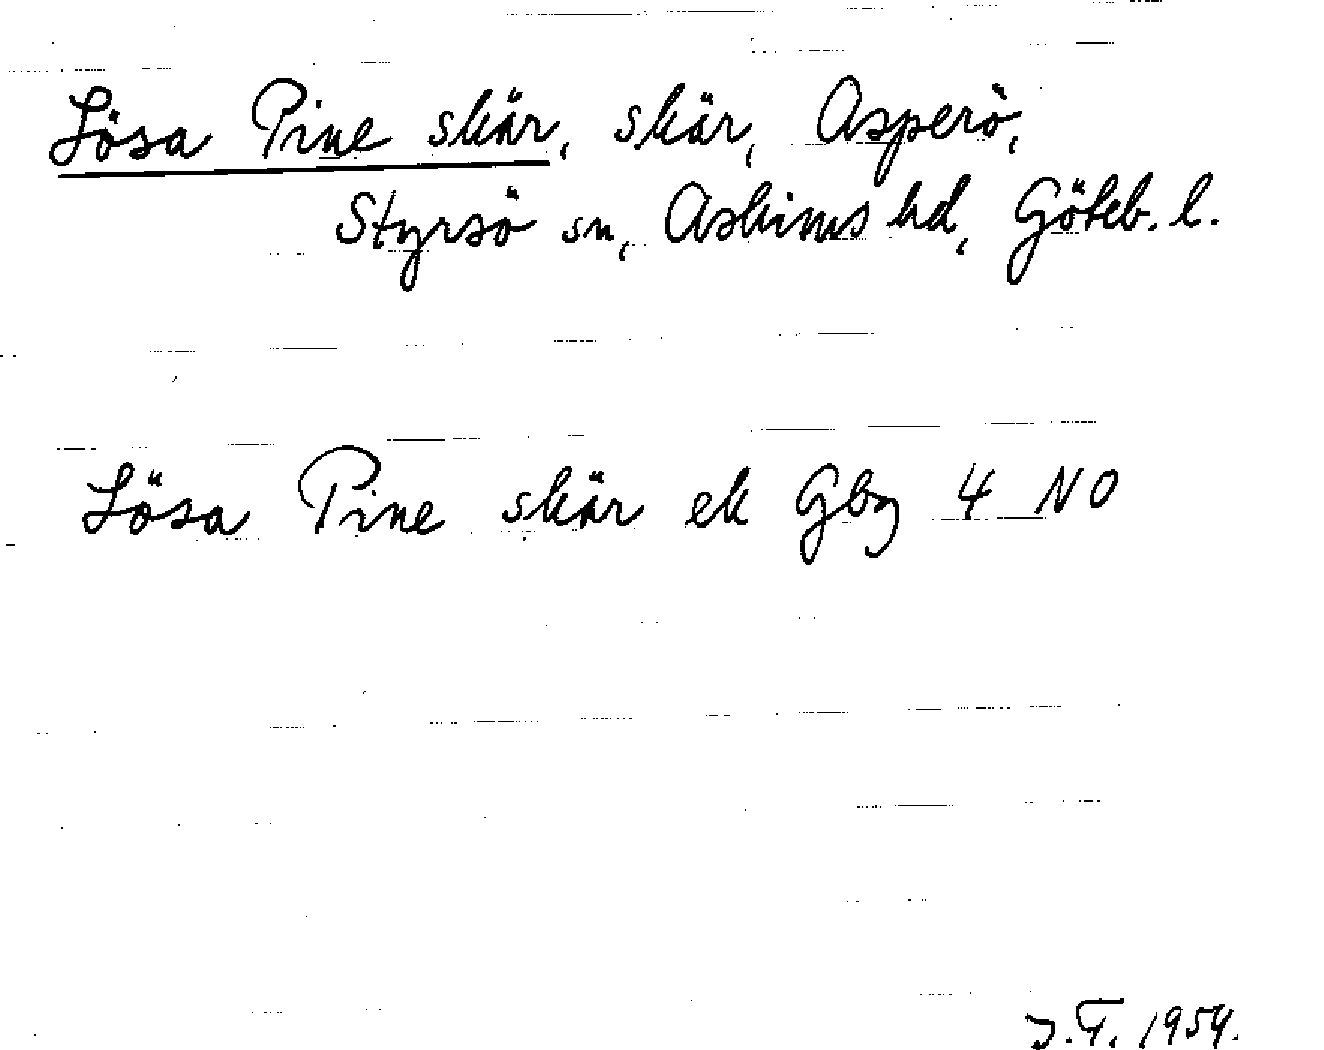 Lösa Pine skär, skär, Asperö,
Styrsö sn, Askims hd, Göteb. l.
Lösa Pine skär ek Gbg 4 NO
J.T. 1954.